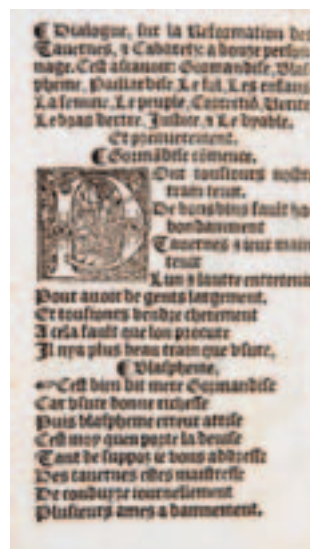 ¶ Dialogue, sur la Reformation des
Tauernes, ⁊ Cabaretz a douze person
nage. Cest ascauoir: Gormandise, Blas
pheme, Paillardise, Le fil, Les enfans
La femme, Le peuple, Correctiõ, Verite
Le bras dextre, Justice, ⁊ Le dyable.
Et premierement.
¶ Gormãdise cõmence.
POur tousiours nostre
train tenir,
De bons vins fault ha
bondamment
Tauernes ⁊ ieux main
tenir
Lun ⁊ lautre entretenir
Pour auoir de gents largement.
Et tousiours vendre cherement
A cela fault que lon procure
Il nya plus beau train que vsure,
¶ Blaspheme,
☞ Cest bien dit mere Gormandise
Car vsure donne richesse
Puis blaspheme erreur attise
Cest moy quen porte la deuise
Tant de suppoz ie vous addresse
Des tauernes estes maistresse
De conduyre iournellement
Plusieurs ames a damnement.